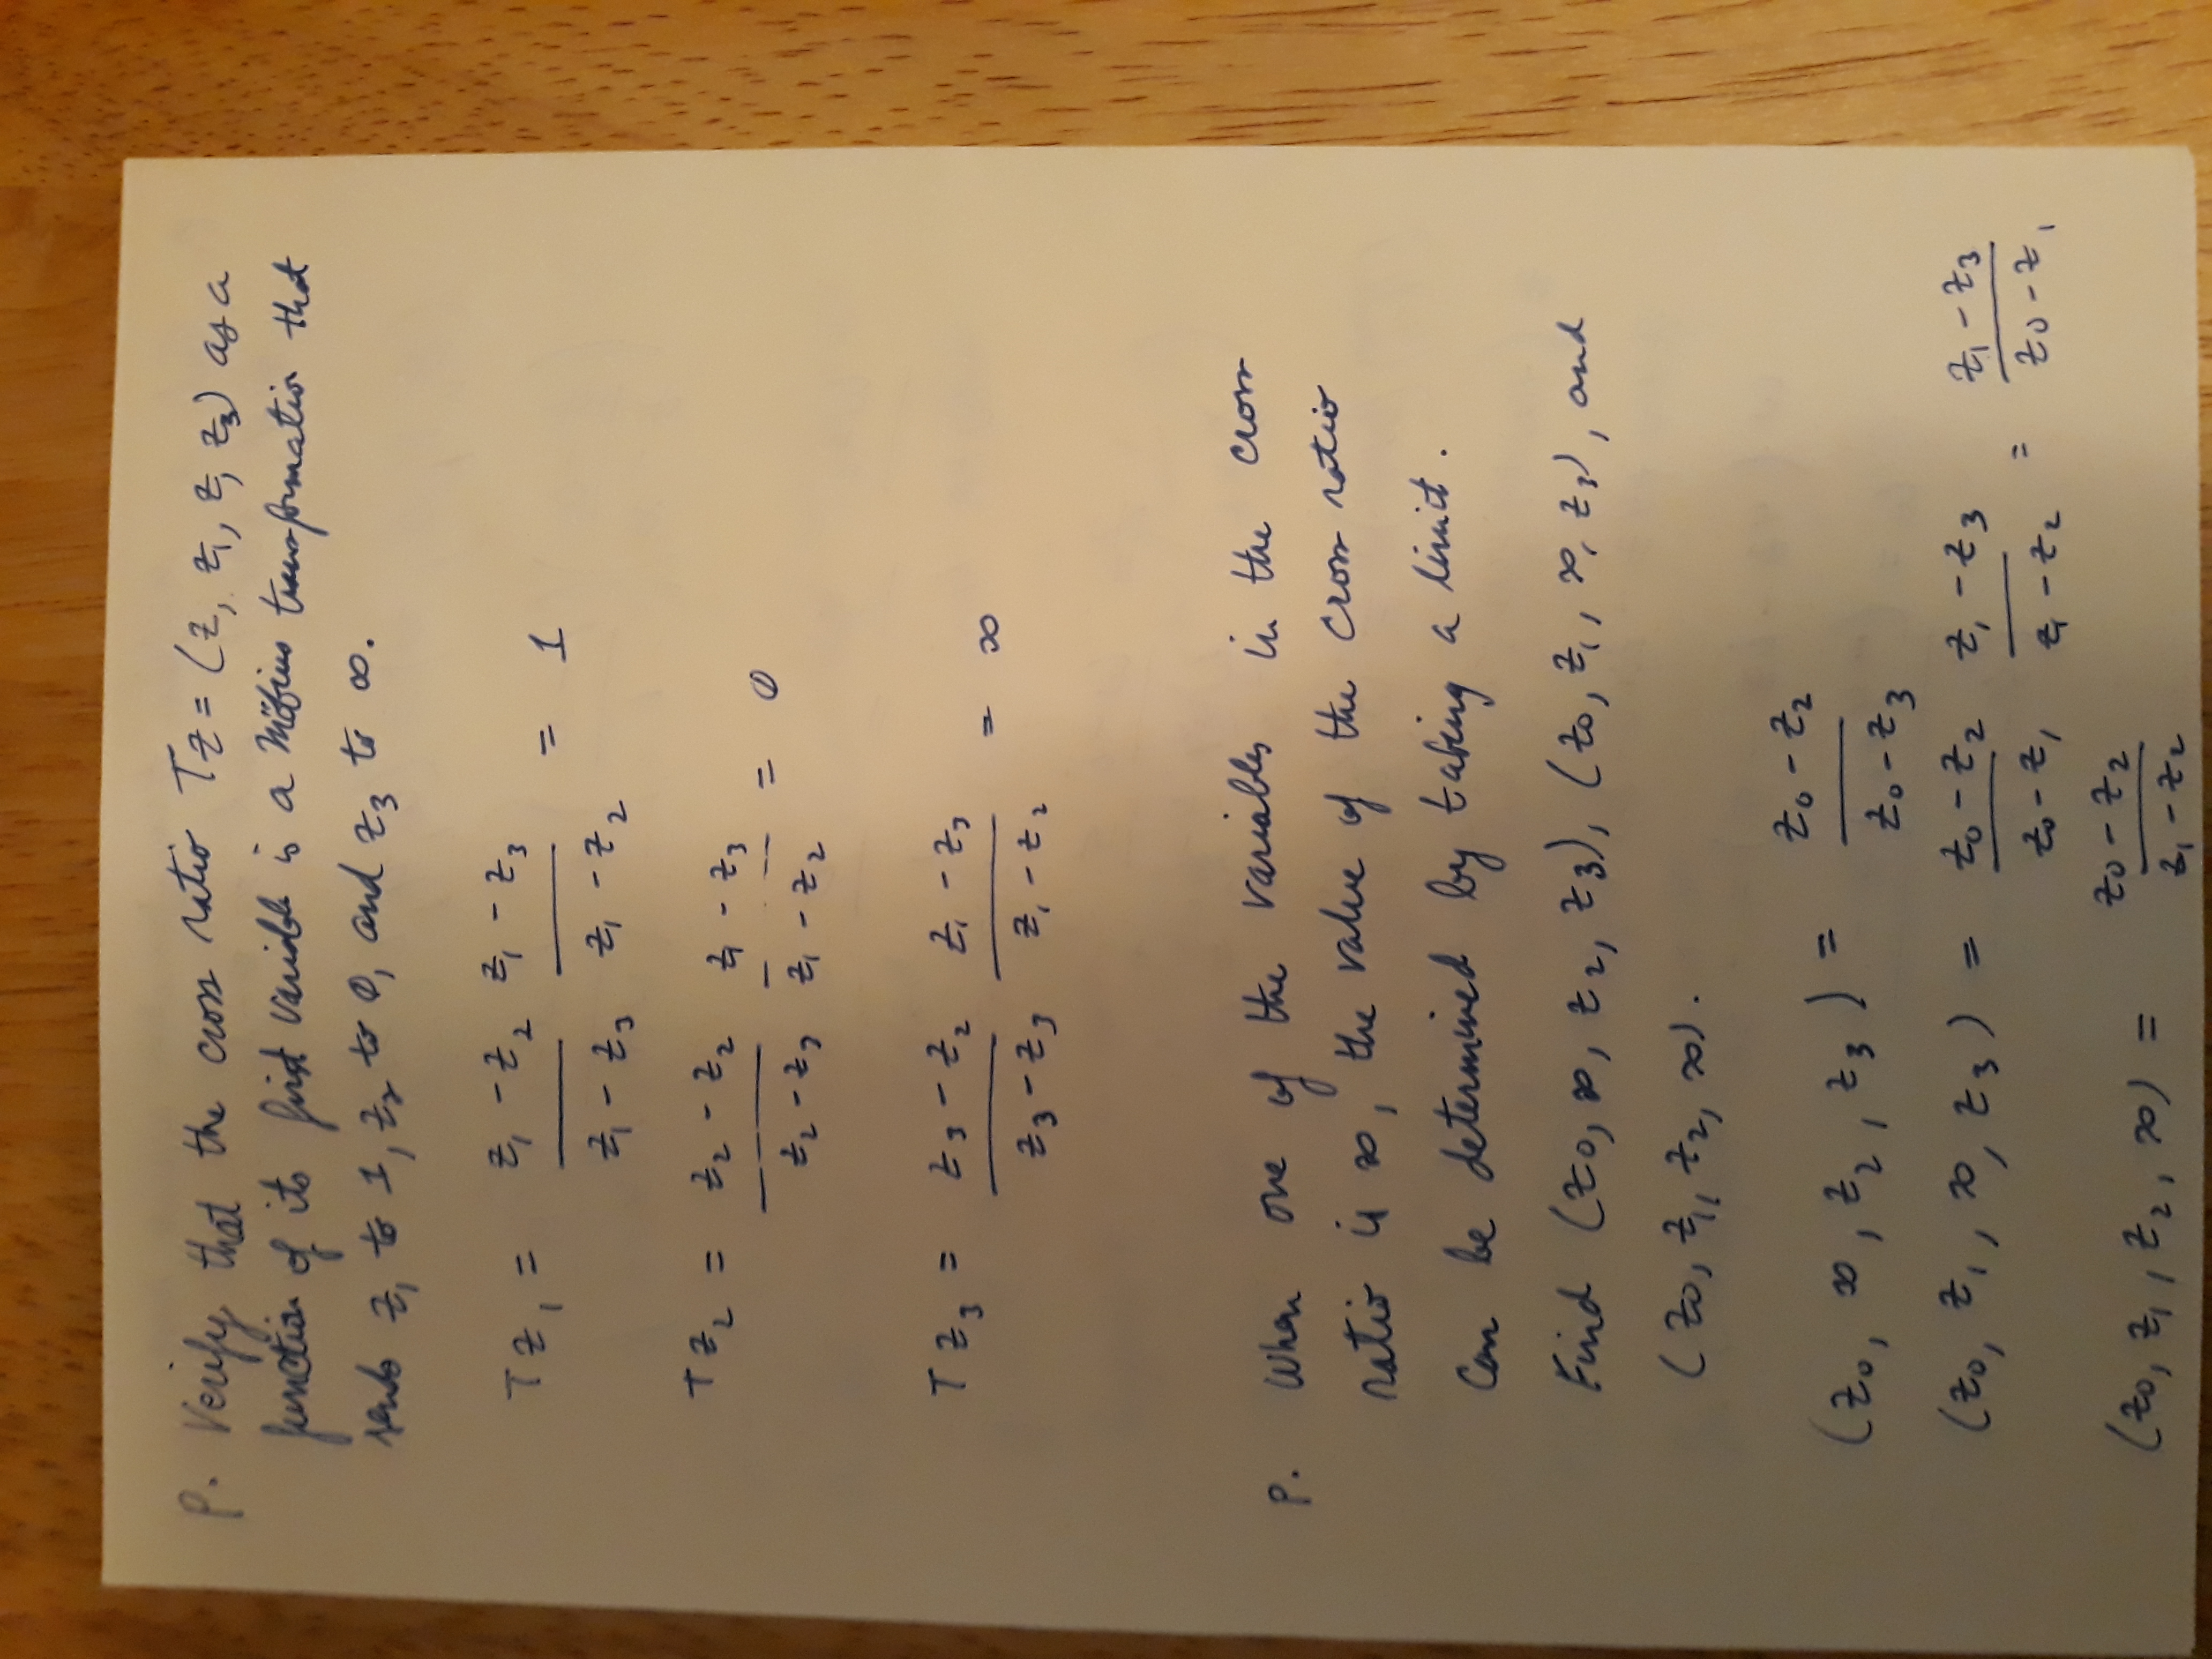 P. Verify that the cross ratio Tz = (z, z₁, z, z₃) as a
function of its first variable is a Möbius transformation that
sends z₁ to 1, z₂ to 0, and z₃ to ∞.
Tz₁ = (z₁ - z₂)/(z₁ - z₃) (z₁ - z₃)/(z₁ - z₂) = 1
Tz₂ = (z₂ - z₂)/(z₂ - z₃) (z₁ - z₃)/(z₁ - z₂) = 0
Tz₃ = (z₃ - z₂)/(z₃ - z₃) (z₁ - z₃)/(z₁ - z₂) = ∞
P. When one of the variables in the cross
ratio is ∞, the value of the cross ratio
can be determined by taking a limit.
Find (z₀, ∞, z₂, z₃), (z₀, z₁, ∞, z₃), and
(z₀, z₁, z₂, ∞).
(z₀, ∞, z₂, z₃) = (z₀ - z₂)/(z₀ - z₃)
(z₀, z₁, ∞, z₃) = (z₀ - z₂)/(z₀ - z₁) (z₁ - z₃)/(z₁ - z₂) = (z₁ - z₃)/(z₀ - z₁)
(z₀, z₁, z₂, ∞) = (z₀ - z₂)/(z₁ - z₂)